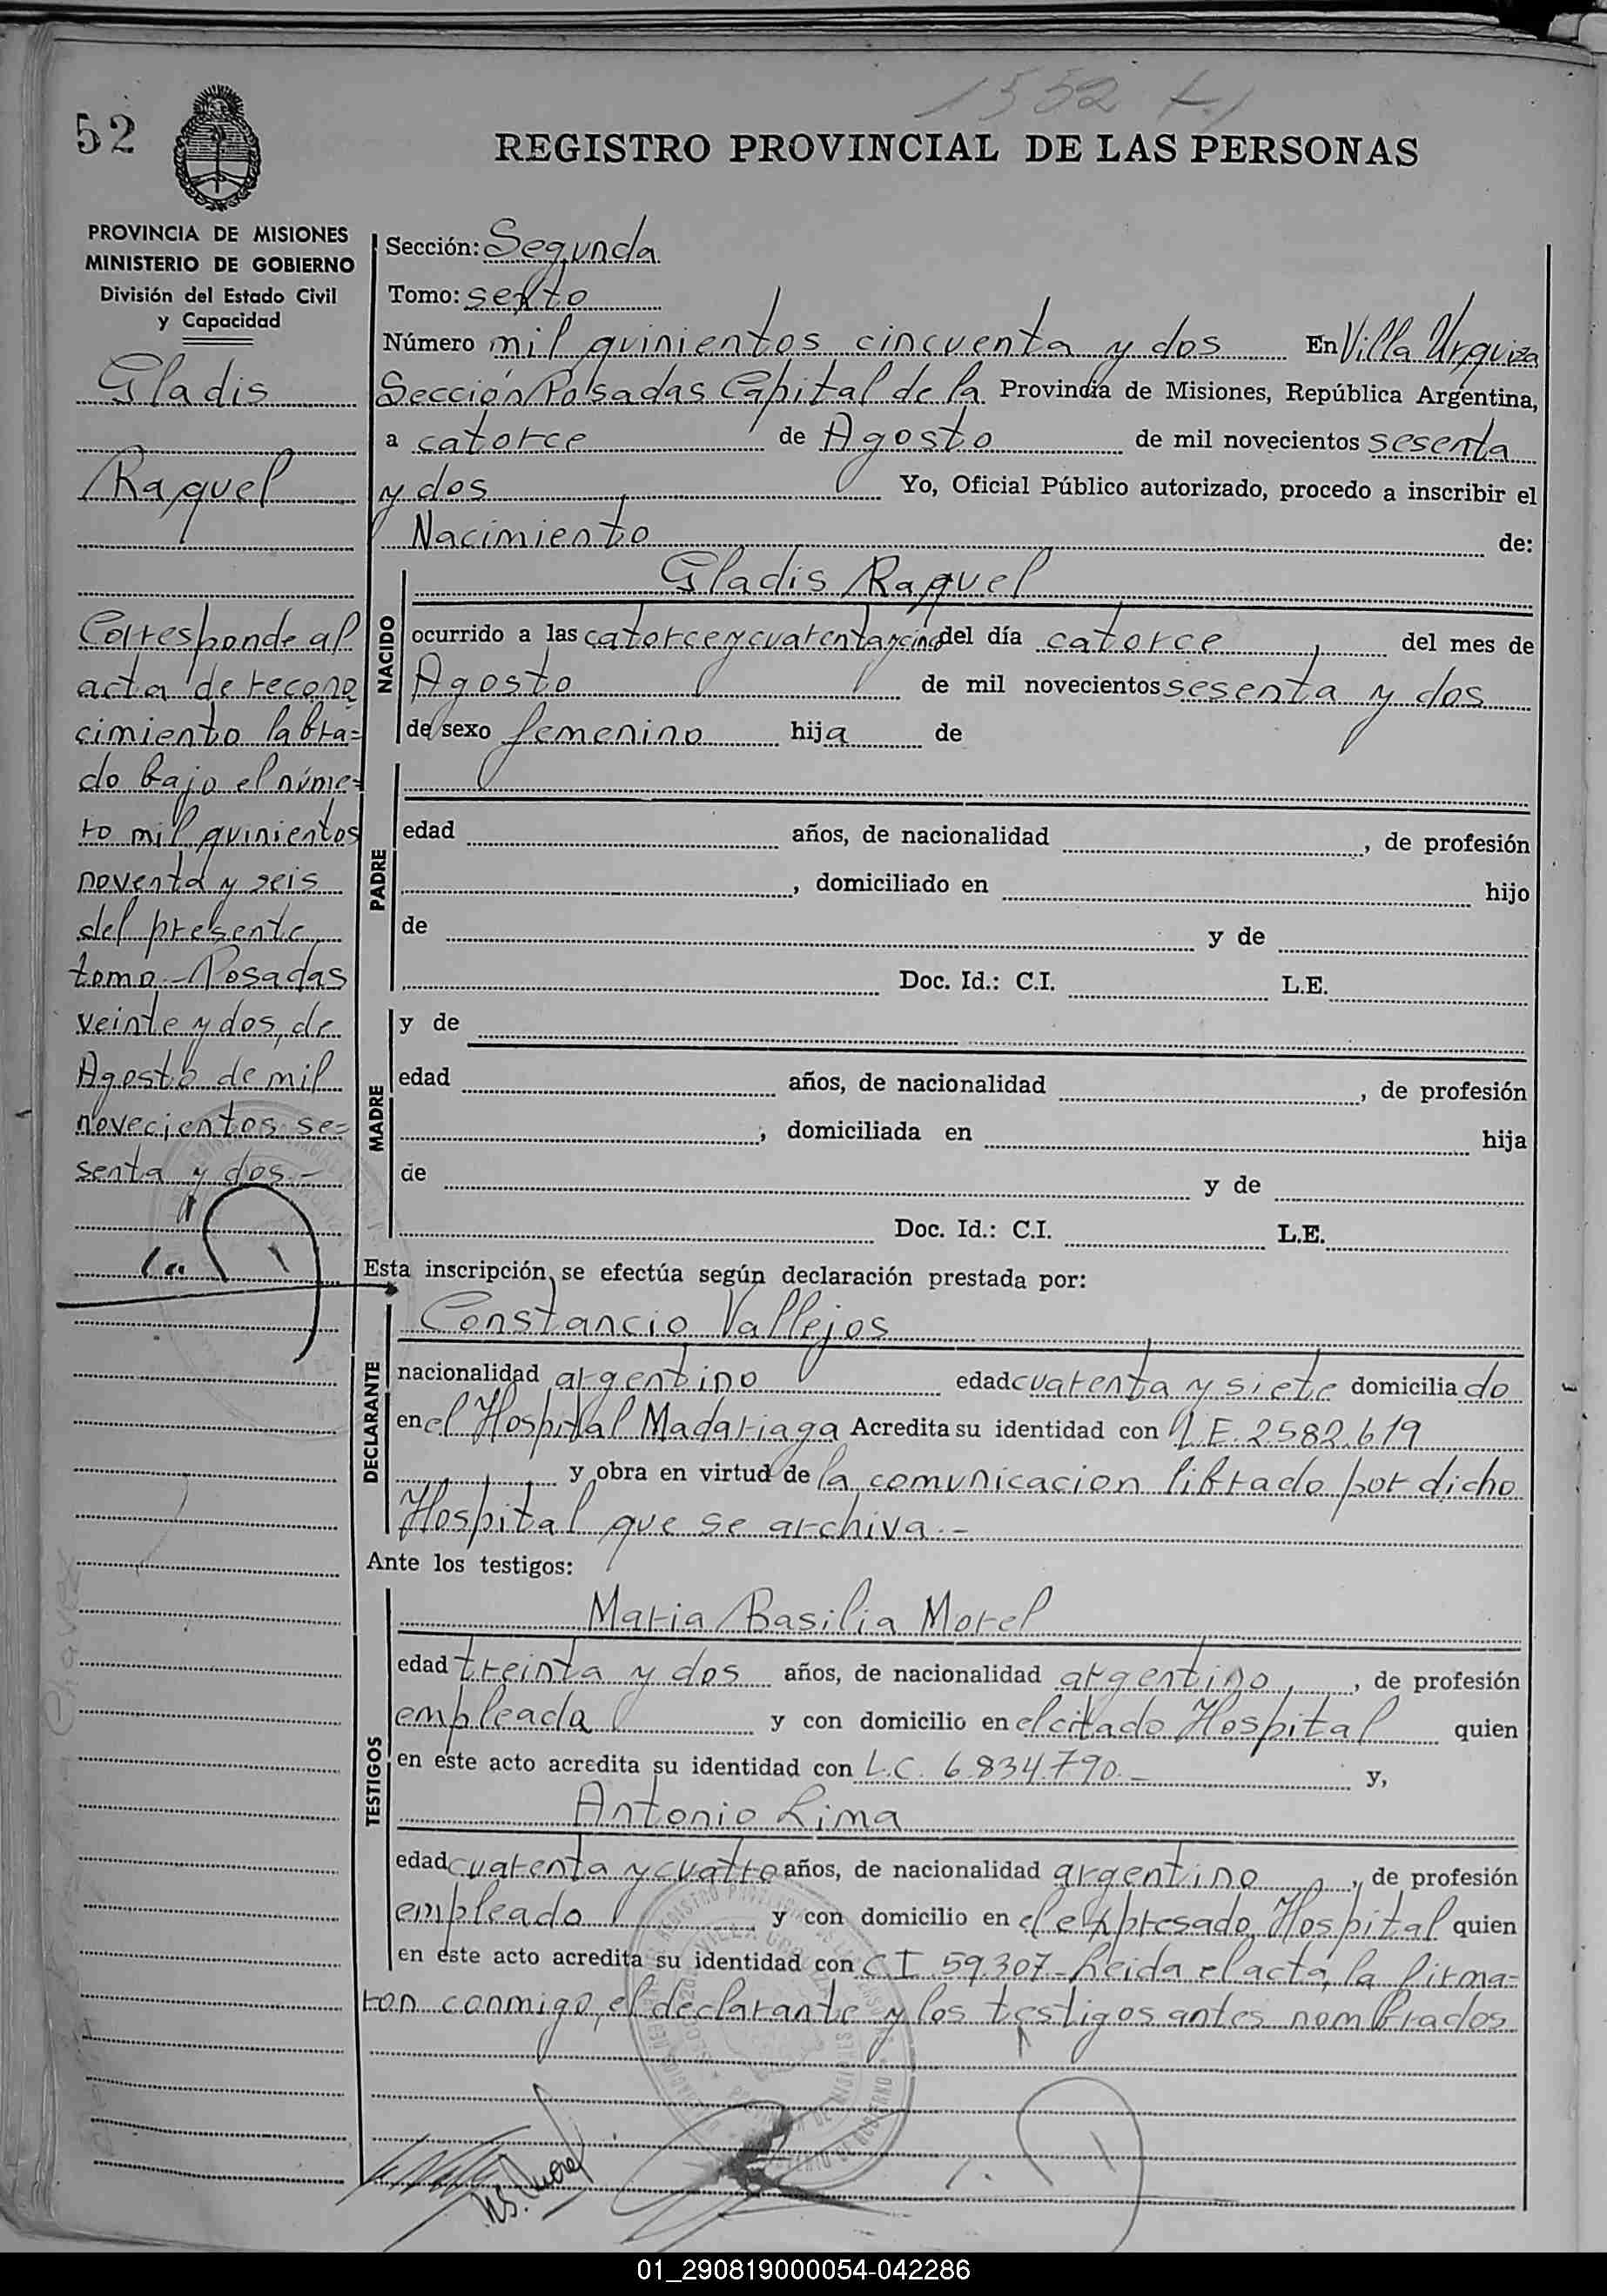 1552
52
REGISTRO PROVINCIAL DE LAS PERSONAS
PROVINCIA DE MISIONES
MINISTERIO DE GOBIERNO
División del Estado Civil
y Capacidad
Gladis
Raquel
Corresponde al
acta de recono
cimiento labra=
do bajo el núme=
ro mil quinientos
noventa y seis
del presente
tomo - Posadas
veinte y dos, de
Agosto de mil
novecientos se=
senta y dos.-
Sección: Segunda
Tomo: sexto
Número mil quinientos cincuenta y dos En Villa Urquiza
Sección Posadas Capital de la Provincia de Misiones, República Argentina,
a catorce de Agosto de mil novecientos sesenta
y dos Yo, Oficial Público autorizado, procedo a inscribir el
Nacimiento de:
NACIDO
Gladis Raquel
ocurrido a las catorce y cuarenta y cinco del día catorce del mes de
Agosto de mil novecientos sesenta y dos
de sexo femenino hija de
PADRE
edad años, de nacionalidad , de profesión
, domiciliado en hijo
de y de
Doc. Id.: C.I. L.E.
MADRE
y de
edad años, de nacionalidad , de profesión
, domiciliada en hija
de y de
Doc. Id.: C.I. L.E.
Esta inscripción, se efectúa según declaración prestada por:
DECLARANTE
Constancio Vallejos
nacionalidad argentino edad cuarenta y siete domiciliado
en el Hospital Madariaga Acredita su identidad con L.E. 2.582.619
y obra en virtud de la comunicacion librado por dicho
Hospital que se archiva.-
Ante los testigos:
TESTIGOS
Maria Basilia Morel
edad treinta y dos años, de nacionalidad argentino, de profesión
empleada y con domicilio en el citado Hospital quien
en este acto acredita su identidad con L.C. 6.834.790.- y,
Antonio Lima
edad cuarenta y cuatro años, de nacionalidad argentino, de profesión
empleado y con domicilio en el expresado Hospital quien
en este acto acredita su identidad con C.I. 59.307- Leida el acta, la firma=
ron conmigo, el declarante y los testigos antes nombrados
Morel
01_290819000054-042286